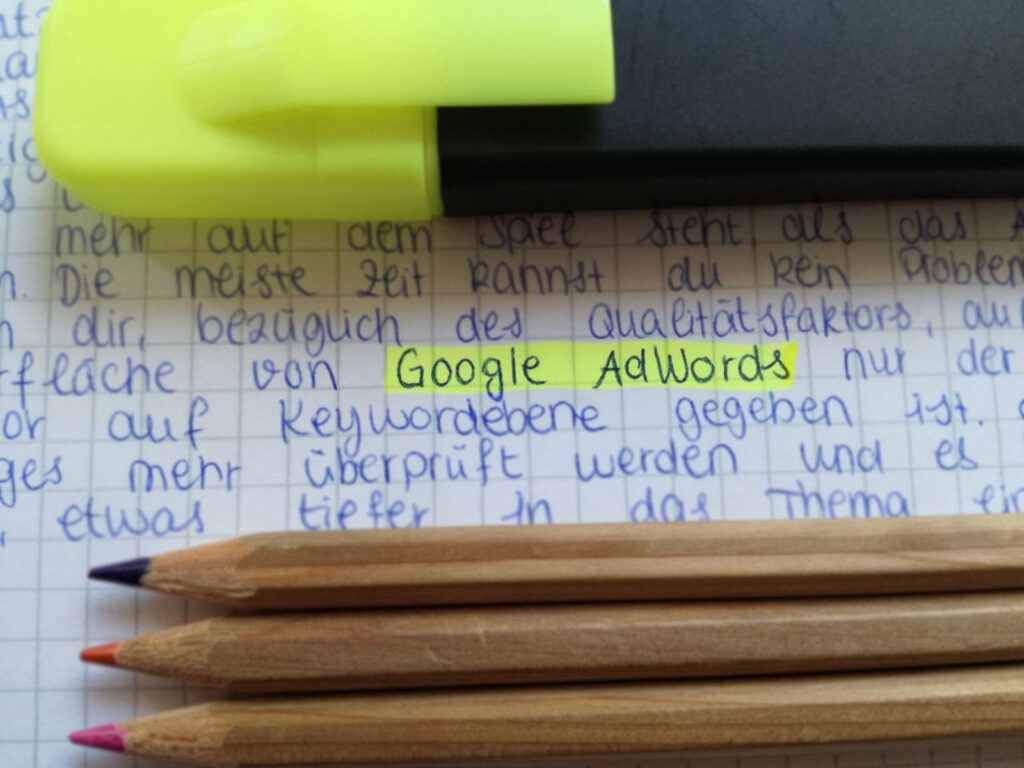 mehr auf dem Spiel steht, als das
Die meiste Zeit kannst du kein Problem
dir, bezüglich des Qualitätsfaktors, auf
rfläche von Google AdWords nur der
or auf Keywordebene gegeben ist.
ges mehr überprüft werden und es
etwas tiefer in das Thema ein